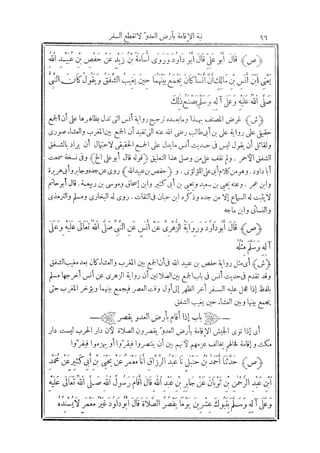 ٩٦ نية الإقامة بأرض العدو لا تقطع السفر
(ص) قَالَ أَبُو عَلِيٍّ قَالَ أَبُو دَاوُدَ وَرَوَى أُسَامَةُ بْنُ زَيْدٍ عَنْ حَفْصِ بْنِ عُبَيْدِ اللهِ
يَعْنِي ابْنَ أَنَسِ بْنِ مَالِكٍ أَنَّ أَنَسًا كَانَ يَجْمَعُ بَيْنَهُمَا حِينَ يَغِيبُ الشَّفَقُ وَيَقُولُ كَانَ النَّبِيُّ
صَلَّى اللهُ عَلَيْهِ وَعَلَى آلِهِ وَسَلَّمَ يَصْنَعُ ذَلِكَ
(ش) غرض المصنف بهذا وما بعده ترجيح رواية أنس التى تدل بظاهرها على أن الجمع
حقيقى على رواية على بن أبى طالب رضى الله عنه التى تفيد أن الجمع بين المغرب والعشاء صورى
ولقائل أن يقول ليس فى حديث أنس ما يدل على الجمع الحقيقى لاحتمال أن يراد بالشفق
الشفق الأحمر. ولم نقف على من وصل هذا التعليق (قوله قال أبو على الخ) وفى نسخة حدثنا
أبو داود. وهو من كلام أبى على اللؤلؤى. و (حفص بن عبيد الله) روى عن جده وجابر وأبى هريرة
وابن عمر. وعنه يحيى بن سعيد ويحيى بن أبى كثير وابن إسحاق وموسى بن ربيعة. قال أبو حاتم
لا يثبت له السماع إلا من جده وذكره ابن حبان فى الثقات. روى له البخارى ومسلم والترمذى
والنسائى وابن ماجه
(ص) قَالَ أَبُو دَاوُدَ وَرِوَايَةُ الزُّهْرِيِّ عَنْ أَنَسٍ عَنِ النَّبِيِّ صَلَّى اللهُ تَعَالَى عَلَيْهِ وَعَلَى
آلِهِ وَسَلَّمَ مِثْلُهُ
(ش) أى مثل رواية حفص بن عبيد الله فى أن الجمع بين المغرب والعشاء كان بعد مغيب الشفق
وقد تقدم فى حديث أنس فى باب الجمع بين الصلاتين أن رواية الزهرى عن أنس أخرجها مسلم
بلفظ إذا عجل عليه السفر أخر الظهر إلى أول وقت العصر فيجمع بينهما ويؤخر المغرب حتى
يجمع بينها وبين العشاء حين يغيب الشفق
باب إذا أقام بأرض العدو يقصر
أى إذا نوى الجيش الإقامة بأرض العدو يقصرون الصلاة لأن دار الحرب ليست دار
مكث وإقامة فحالهم يخالف عزمهم لأنهم بين أن ينتصروا فيقرّوا أو يهزموا فيفرّوا
(ص) حَدَّثَنَا أَحْمَدُ بْنُ حَنْبَلٍ نَا عَبْدُ الرَّزَّاقِ أَنَا مَعْمَرٌ عَنْ يَحْيَى بْنِ أَبِي كَثِيرٍ عَنْ مُحَمَّدِ
ابْنِ عَبْدِ الرَّحْمَنِ بْنِ ثَوْبَانَ عَنْ جَابِرِ بْنِ عَبْدِ اللهِ قَالَ أَقَامَ رَسُولُ اللهِ صَلَّى اللهُ تَعَالَى عَلَيْهِ
وَعَلَى آلِهِ وَسَلَّمَ بِتَبُوكَ عِشْرِينَ يَوْمًا يَقْصُرُ الصَّلَاةَ قَالَ أَبُو دَاوُدَ غَيْرُ مَعْمَرٍ لَا يُسْنِدُهُ